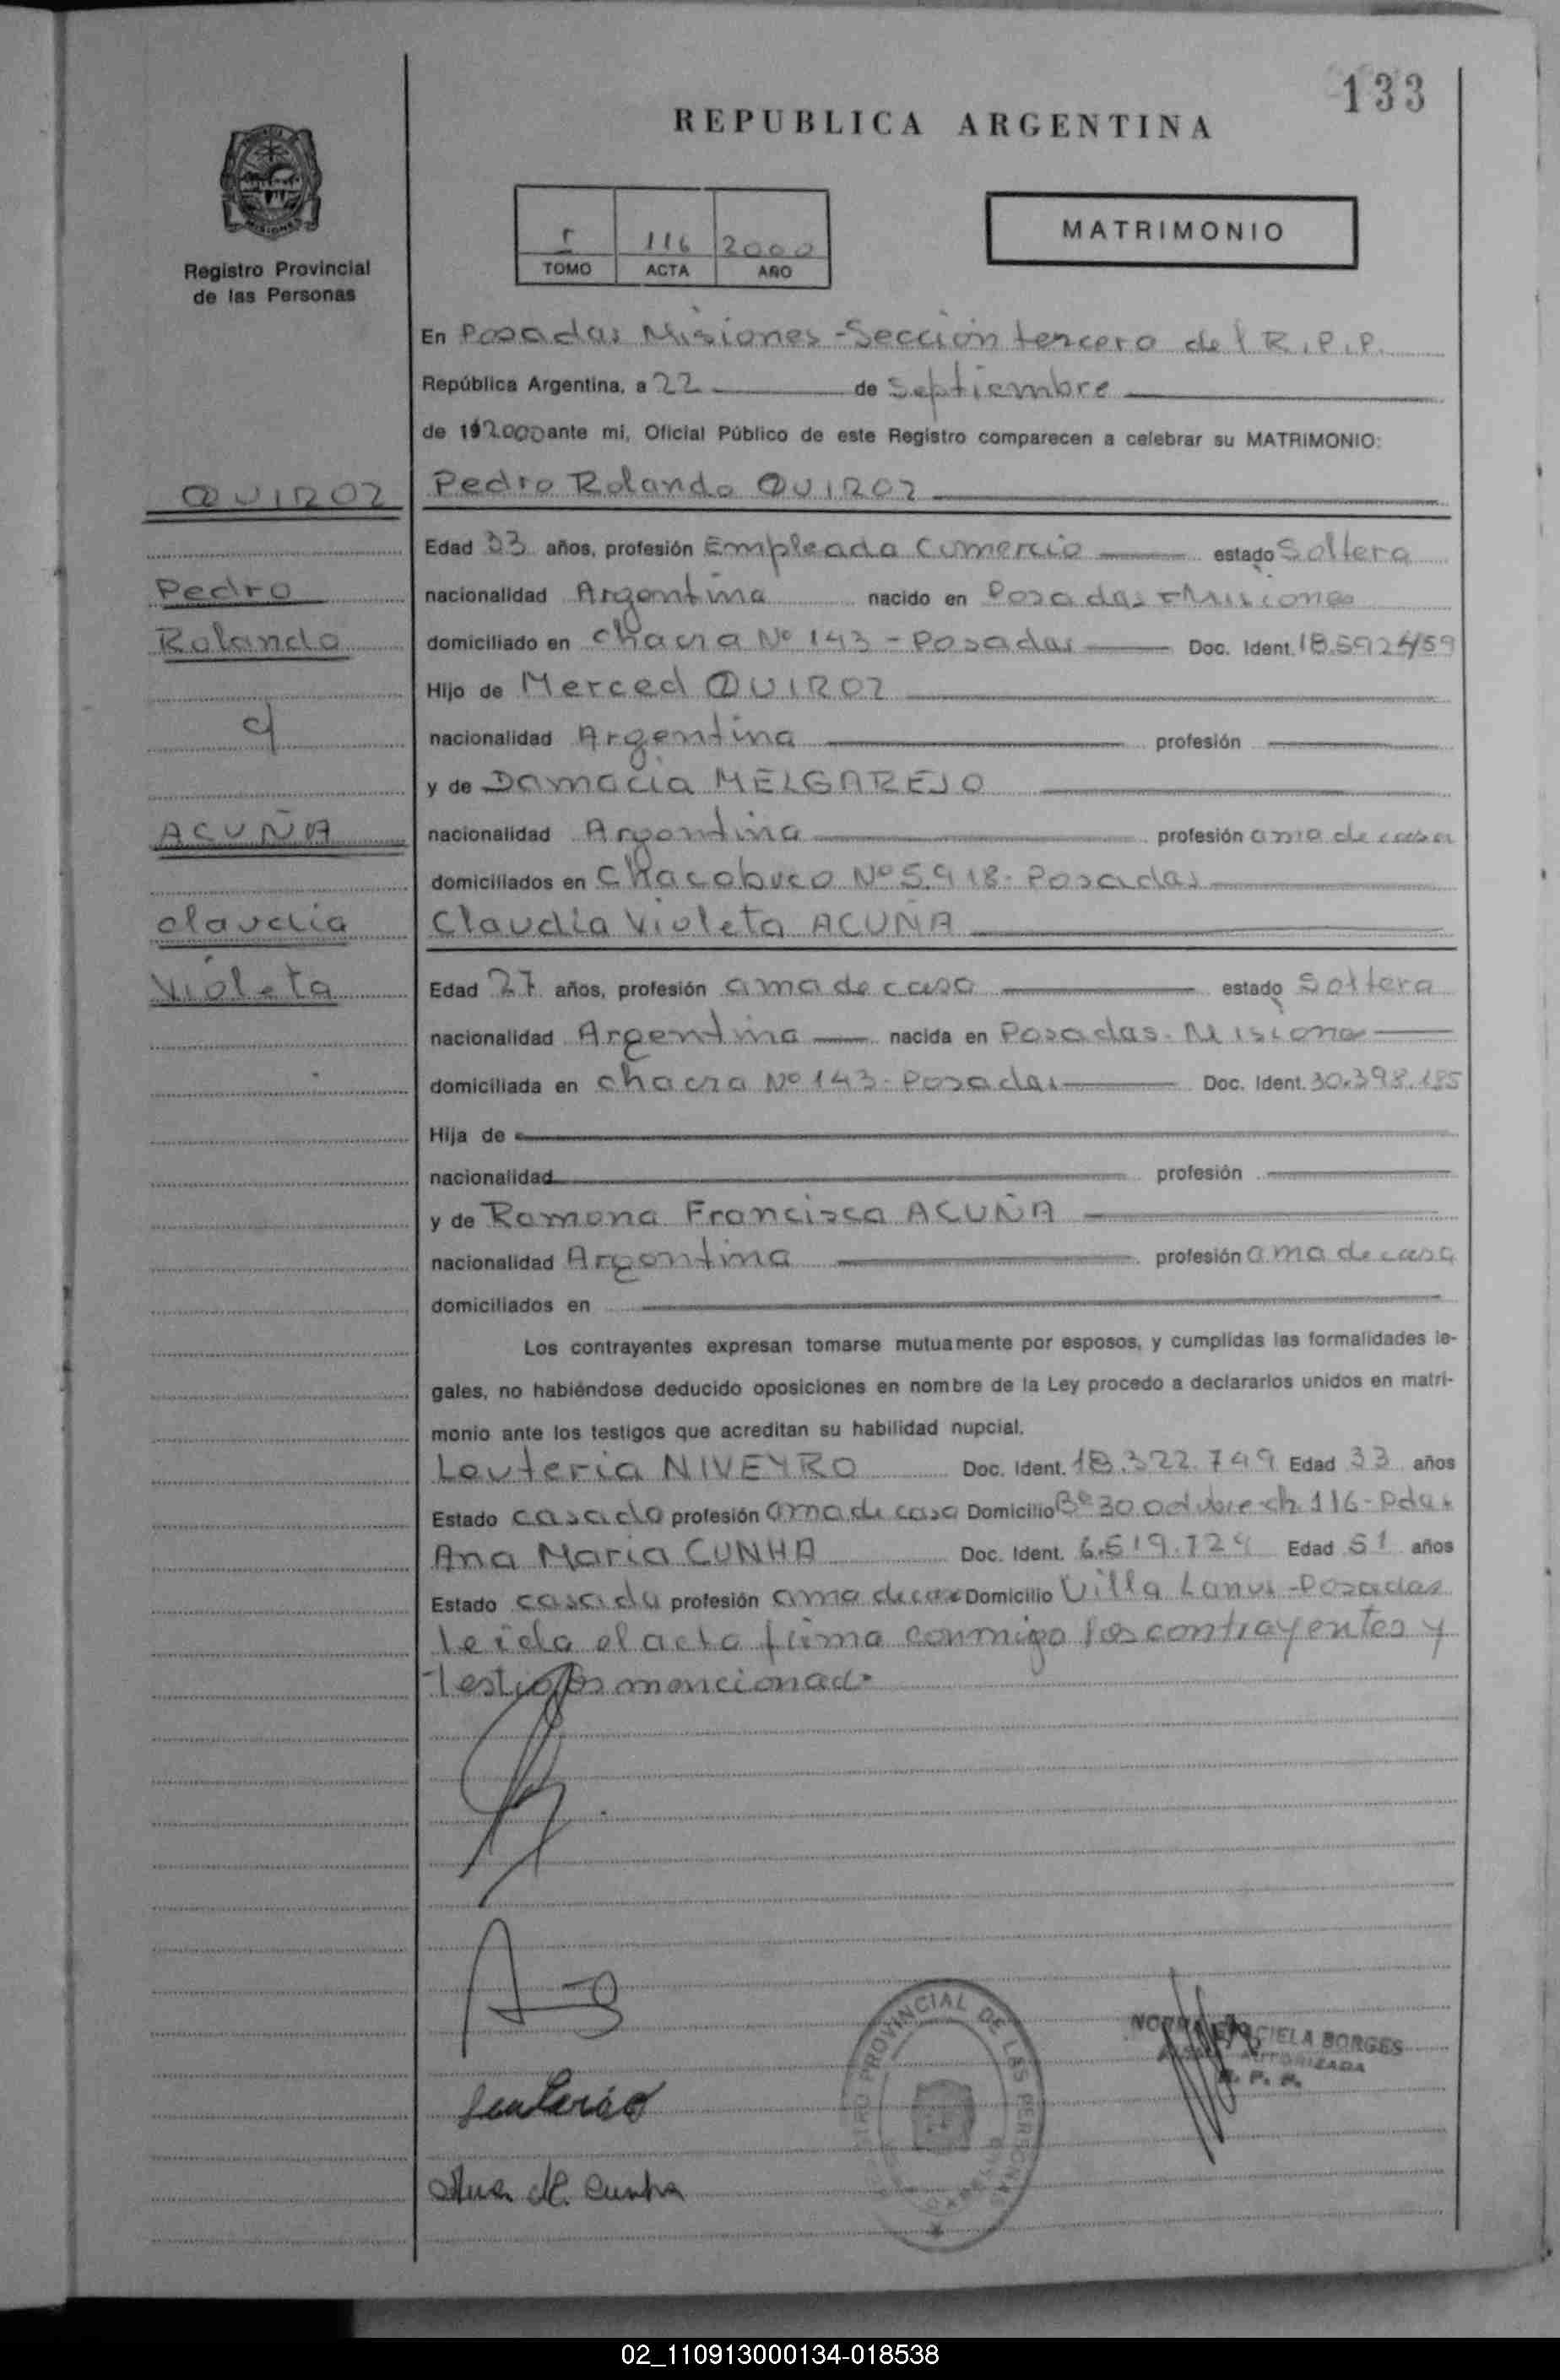 133
REPUBLICA ARGENTINA
Registro Provincial
de las Personas
I 116 2000
TOMO ACTA AÑO
MATRIMONIO
En Posadas Misiones - Sección tercera del R.P.P.
República Argentina, a 22 de Septiembre
de 19 2.000 ante mi, Oficial Público de este Registro comparecen a celebrar su MATRIMONIO:
QUIROZ
Pedro Rolando QUIROZ
Edad 33 años, profesión Empleado Comercio estado Soltero
Pedro
nacionalidad Argentina nacido en Posadas - Misiones
Rolando
domiciliado en Chacra Nº 143 - Posadas Doc. Ident.
Hijo de Merced QUIROZ
c/
nacionalidad Argentina profesión
y de Damacia MELGAREJO
ACUÑA
nacionalidad Argentina profesión ama de casa
domiciliados en Chacobuco Nº 5918 - Posadas
Claudia
Claudia Violeta ACUÑA
Violeta
Edad 27 años, profesión ama de casa estado Soltera
nacionalidad Argentina nacida en Posadas - Misiones
domiciliada en Chacra Nº 143 - Posadas Doc. Ident. 30.398.185
Hija de
nacionalidad profesión
y de Ramona Francisca ACUÑA
nacionalidad Argentina profesión ama de casa
domiciliados en
Los contrayentes expresan tomarse mutuamente por esposos, y cumplidas las formalidades le-
gales, no habiéndose deducido oposiciones en nombre de la Ley procedo a declararlos unidos en matri-
monio ante los testigos que acreditan su habilidad nupcial.
Leuteria NIVEYRO Doc. Ident. 18.322.749 Edad 33 años
Estado casada profesión ama de casa Domicilio Bº 30 octubre ch 116 - Pdas
Ana Maria CUNHA Doc. Ident. 6.619.724 Edad 51 años
Estado casada profesión ama de casa Domicilio Villa Lanus - Posadas
leida el acta firma conmigo los contrayentes y
testigos mencionad.
Leuteria
Ana M. Cunha
REGISTRO PROVINCIAL DE LAS PERSONAS
NORMA GRACIELA BORGES
AUTORIZADA
R. P. P.
02_110913000134-018538